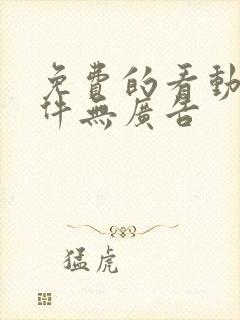 免費的看動
件無廣告
猛虎